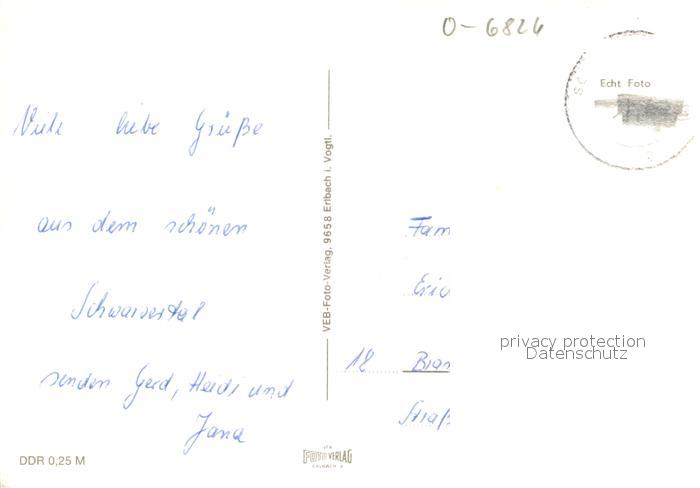 O-6826
Echt Foto
Viele liebe Grüße
aus dem schönen
Schwarzatal
senden Gerd, Heidi und
Jana
VEB-Foto-Verlag, 9658 Erlbach i. Vogtl.
Fam
Eric
18 Bran
Straß
privacy protection
Datenschutz
DDR 0,25 M
VEB
FOTO VERLAG
ERLBACH V